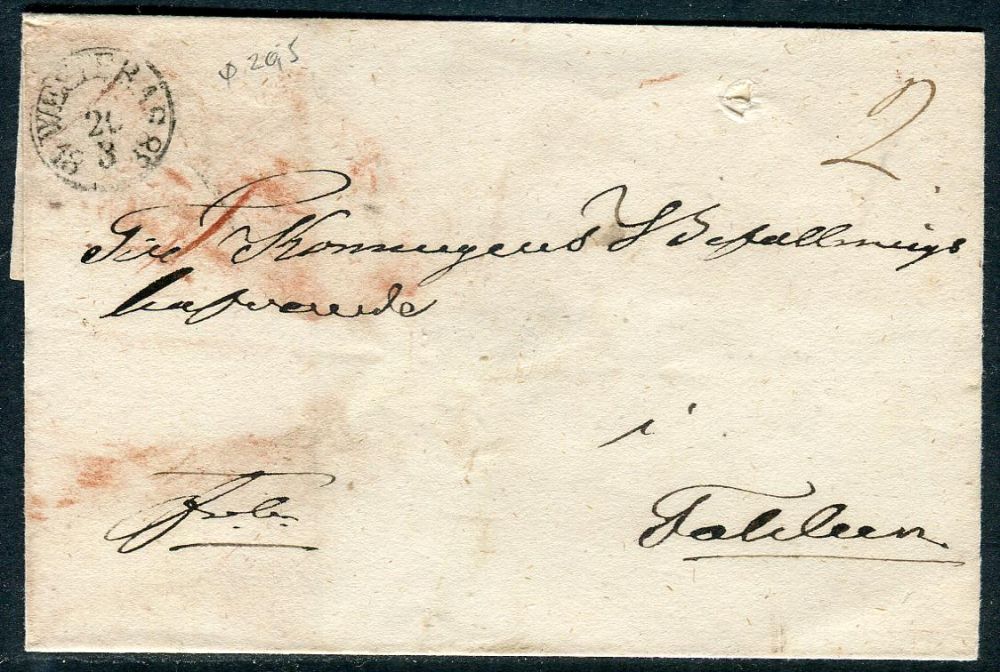 WESTERÅS
21
3
φ 29,5
2
Till Konungens Befallnings
hafvande
i
Fahlun